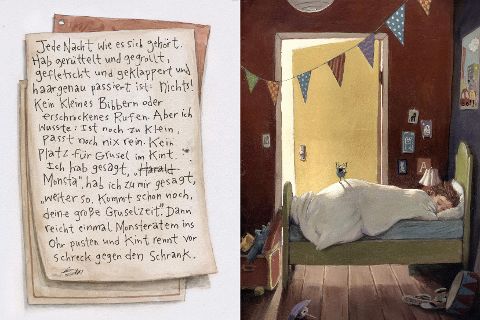 Jede Nacht wie es sich gehört.
Hab gerüttelt und gegrollt,
gefletscht und geklappert und
haargenau passiert ist: Nichts!
Kein kleines Bibbern oder
erschrockenes Rufen. Aber ich
wusste: Ist noch zu klein,
passt noch nix rein. Kein
Platz für Grusel im Kint.
Ich hab gesagt, „Harald
Monsta", hab ich zu mir gesagt,
„weiter so. Kommt schon noch,
deine große Gruselzeit". Dann
reicht einmal Monsteratem ins
Ohr pusten und Kint rennt vor
schreck gegen den Schrank.